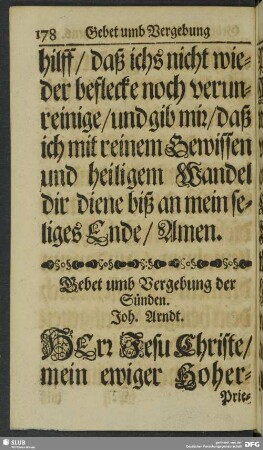 178 Gebet umb Vergebung
hilff / daß ichs nicht wie-
der beflecke noch verun-
reinige / und gib mir / daß
ich mit reinem Gewissen
und heiligem Wandel
dir diene biß an mein se-
liges Ende / Amen.
Gebet umb Vergebung der
Sünden.
Joh. Arndt.
HErr Jesu Christe /
mein ewiger Hoher-
Prie-
SLUB
DFG